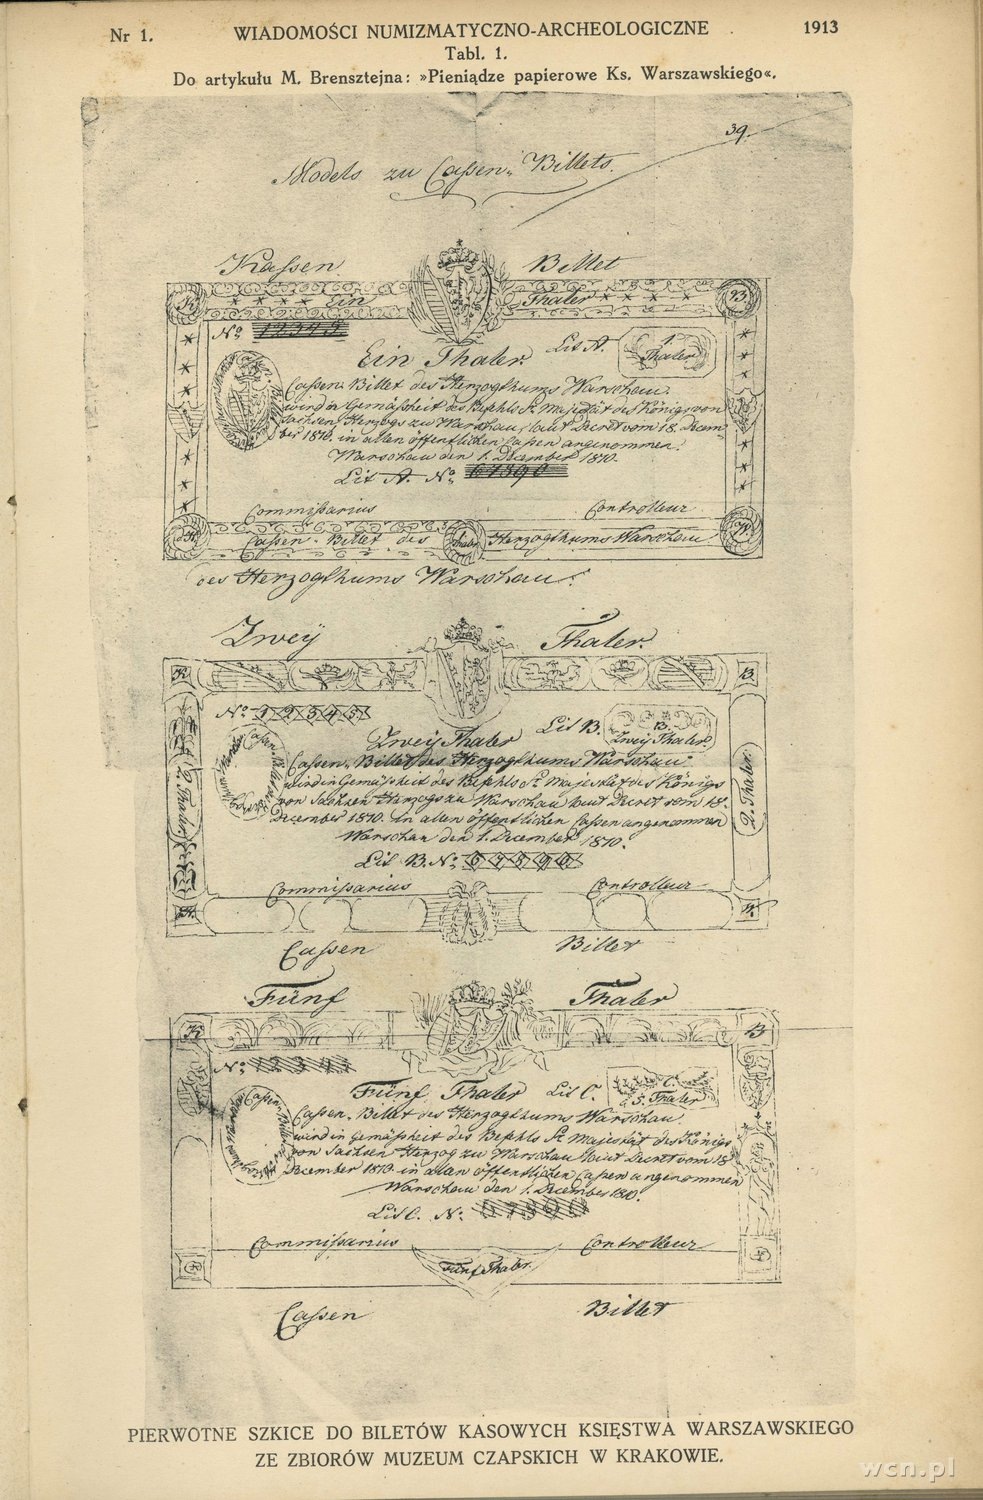 Nr 1.
WIADOMOŚCI NUMIZMATYCZNO-ARCHEOLOGICZNE
1913
Tabl. 1.
Do artykułu M. Brensztejna: »Pieniądze papierowe Ks. Warszawskiego«.
39.
Models zu Caſsen-Billets.
Kaſsen Billet
Ein Thaler
No 12345
Ein Thaler. Lit A. 1. Thaler
Caſsen-Billet des Herzogthums Warschau.
wird in Gemäſsheit des Befehls Sr. Majestät des Königs von
Sachsen, Herzogs zu Warschau, laut Decret vom 18. Decem-
ber 1810. in allen öffentlichen Caſsen angenommen.
Warschau den 1. December 1810.
Lit A. No. 67890
Commiſsarius Controlleur
Caſsen-Billet des Thaler Herzogthums Warschau
des Herzogthums Warschau.
Zwey Thaler.
No 12345
Zwey Thaler Lit B. B. Zwey Thaler.
Caſsen-Billet des Herzogthums Warschau.
wird in Gemäſsheit des Befehls Sr. Majestät des Königs
von Sachsen Herzogs zu Warschau laut Decret vom 18.
December 1810. in allen öffentlichen Caſsen angenommen
Warschau den 1. December 1810.
Lit B. No. 67890
2 Thaler
2. Thaler.
Commiſsarius Controlleur
Caſsen Billet
Fünf Thaler
No 12345
Fünf Thaler Lit C. C. 5. Thaler
Caſsen-Billet des Herzogthums Warschau.
wird in Gemäſsheit des Befehls Sr. Majestät des Königs
von Sachsen Herzog zu Warschau laut Decret vom 18
December 1810 in allen öffentlichen Caſsen angenommen
Warschau den 1. December 1810.
Lit C. No. 67890
Commiſsarius Controlleur
Fünf Thaler.
Caſsen Billet
PIERWOTNE SZKICE DO BILETÓW KASOWYCH KSIĘSTWA WARSZAWSKIEGO
ZE ZBIORÓW MUZEUM CZAPSKICH W KRAKOWIE.
wcn.pl